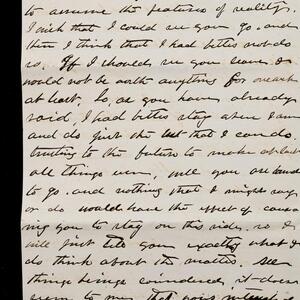 to assume the features of reality.
I wish that I could see you go, and
then I think that I had better not do
so. If I should see you leave, I
would not be worth anything for a week
at least. So, as you have already
said, I had better stay where I am
and do just the best that I can do
trusting to the future to make
all things even, well you are bound
to go, and nothing that I might say
or do would have the effect of caus-
ing you to stay on this side, so I
will just tell you exactly what I
do think about the matter. see
things being considered, it does
seem to me that your